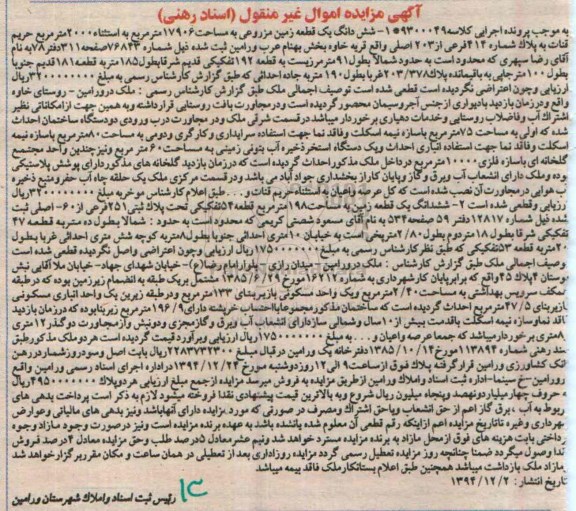 آگهی مزایده اموال غیر منقول (اسناد رهنی)
به موجب پرونده اجرایی کلاسه ۹۳۰۰۰۴۹ ۱- شش دانگ یک قطعه زمین مزروعی به مساحت ۱۷۹۰۶ مترمربع به استثناء ۲۰۰۰ مترمربع حریم
قنات به پلاک شماره ۴۱۴ فرعی از ۲۰۳ اصلی واقع قریه خاوه بخش بهنام عرب ورامین ثبت شده ذیل شماره ۷۶۸۴۳ صفحه ۳۱۱ دفتر ۷۸ به نام
آقای رضا سپهری که محدود است به حدود شمالا بطول ۹۱ متر مرزیست به قطعه ۱۹۲ تفکیکی قدیم شرقا بطول ۱۸۵ متر به قطعه ۱۸۱ قدیم جنوبا
بطول ۱۰۰ متر جایی به باقیمانده پلاک ۲۰۳/۳۷۸ غربا بطول ۱۹۰ متر به جاده احداثی که طبق گزارش کارشناس رسمی به مبلغ ۳۲۰۰۰۰۰۰۰۰ ریال
ارزیابی وچون اعتراضی نگردیده است قطعی شده است توصیف اجمالی ملک طبق گزارش کارشناس رسمی : ملک درورامین - روستای خاوه
واقع ودرزمان بازدید بادیواری ازجنس آجروسیمان محصورگردیده است ودرمجاورت بافت روستایی قرارداشته وبه همین جهت ازامکاناتی نظیر
اشتراک آب وفاضلاب روستایی وخدمات دهیاری برخوردار میباشد درقسمت شرقی ملک ودر مجاورت درب ورودی دودستگاه ساختمان احداث
شده که اولی به مساحت ۷۵ مترمربع باسازه نیمه اسکلت وفاقد نما جهت استفاده سرایداری وکارگری ودومی به مساحت ۸۰ مترمربع باسازه نیمه
اسکلت وفاقد نما جهت استفاده انباری احداث ویک دستگاه استخرذخیره آب بتونی زمینی به مساحت ۶۰ متر مربع ونیزچندین واحد مجتمع
گلخانه ای باسازه فلزی ۱۰۰۰۰ مترمربع درداخل ملک مذکور احداث گردیده است که درزمان بازدید گلخانه های مذکوردارای پوشش پلاستیکی
بوده وملک دارای انشعاب آب وبرق وگاز وپایان کاراز بخشداری جواد آباد می باشد ودرقسمت مرکزی ملک یک حلقه چاه آب حفر ومنبع ذیره
آب هوایی درمجاورت آن نصب شده است که کل عرصه واعیان به استثناء حریم قنات و ... طبق اعلام کارشناس موخر به مبلغ ۳۲۰۰۰۰۰۰۰۰ ریال
ارزیابی وقطعی شده است ۲- ششدانگ یک قطعه زمین به مساحت ۱۹۸ مترمربع قطعه ۵۴ تفکیکی تحت پلاک ثبتی ۲۵۱ فرعی از ۶۰- اصلی ثبت
شده ذیل شماره ۱۲۸۱۷ دفتر ۵۹ صفحه ۵۳۴ به نام آقای مسعود شصتی کریمی که محدود است به حدود : شمالا بطول ده متر به قطعه ۴۷
تفکیکی شرقا بطول ۱۸ متر دوم بطول ۲/۸۰ متر پخی است به خیابان ۱۰ متری احداثی جنوبا بطول ۸ متر به کوچه شش متری احداثی غربا بطول
۲۰ متر به قطعه ۵۳ تفکیکی که طبق نظر کارشناس رسمی به مبلغ ۱۷۵۰۰۰۰۰۰۰ ریال ارزیابی وچون اعتراضی واصل نگردیده قطعی شده است
توصیف اجمالی ملک طبق گزارش کارشناس : ملک درورامین - میدان رازی - بلوارامام رضا(ع)- خیابان شهدای جهاد- خیابان ملا آقایی نبش
بوستان ۴ پلاک ۴۵ واقع که برابرپایان کارشهرداری به شماره ۱۲۰۱۷ مورخ ۱۳۸۵/۶/۲۹ مشتمل بریک طبقه به انضمام زیرزمین بوده که درطبقه
همکف سرویس بهداشتی به مساحت ۲/۴۰ مترمربع ویک واحد مسکونی بازیربنای ۱۳۳ مترمربع ودرطبقه زیرین یک واحد انباری مسکونی
بازیربنای ۴۷/۵ مترمربع احداث گردیده است که ساختمان مذکورمجموعا بااحتساب خرپشته دارای ۱۹۶/۹ مترمربع زیربنابوده که درزمان بازدید
فاقد نماوسازه نیمه اسکلت باقدمت بیش از ۱۰ سال وشمالی سازدارای انشعاب آب وبرق وگازمجزی ودونبش وازمجاورت دوگذر ۱۲ متری
۸ متری برخوردارمیباشد که جمعا عرصه واعیان و... به مبلغ ۱۷۵۰۰۰۰۰۰۰ ریال ارزیابی وبرآورد قیمت گردیده است هردو ملک مذکورطبق
سند رهنی شماره ۱۱۳۸۹۴ مورخ ۱۳۸۵/۱۰/۱۴ دفترخانه یک ورامین درقبال مبلغ ۲۲۸۳۷۳۲۳۰۰ ریال بابت اصل وسود روزشماردررهن
بانک کشاورزی ورامین قرارگرفته پلاک فوق ازساعت ۹ الی ۱۲ روزدوشنبه مورخ ۱۳۹۴/۱۲/۲۴ دراداره اجرای اسناد رسمی ورامین واقع
درورامین-خ سینما-اداره ثبت اسناد واملاک ورامین ازطریق مزایده به فروش میرسد مزایده ازجمع مبلغ ارزیابی هردوپلاک ۴۹۵۰۰۰۰۰۰۰ ریال
به حروف چهارمیلیاردونهصد وپنجاه میلیون ریال شروع وبه بالاترین قیمت پیشنهادی نقدا فروخته میشود لازم به ذکر است پرداخت بدهی های
مربوط به آب ، برق گاز اعم از حق انشعاب ویاحق اشتراک ومصرف در صورتی که مورد مزایده دارای آنها باشد ونیز بدهی های مالیاتی وعوارض
شهرداری وغیره تاتاریخ مزایده اعم ازاینکه رقم قطعی آن معلوم شده یانشده باشد به عهده برنده مزایده است ونیز درصورت وجود مازاد وجوه
پرداختی بابت هزینه های فوق ازمحل مازاد به برنده مزایده مسترد خواهد شد ونیم عشرمعادل ۵ درصد طلب وحق مزایده معادل ۴ درصد فروش
نقدا وصول میگردد ضمنا چنانچه روز مزایده تعطیل رسمی گردد مزایده روزاداری بعد از تعطیلی در همان ساعت و مکان مقرر برگزارخواهد شد
مازاد ملک بازداشت میباشد همچنین طبق اعلام بستانکارملک فاقد بیمه میباشد
تاریخ انتشار : ۱۳۹۴/۱۲/۲
رئیس ثبت اسناد واملاک شهرستان ورامین